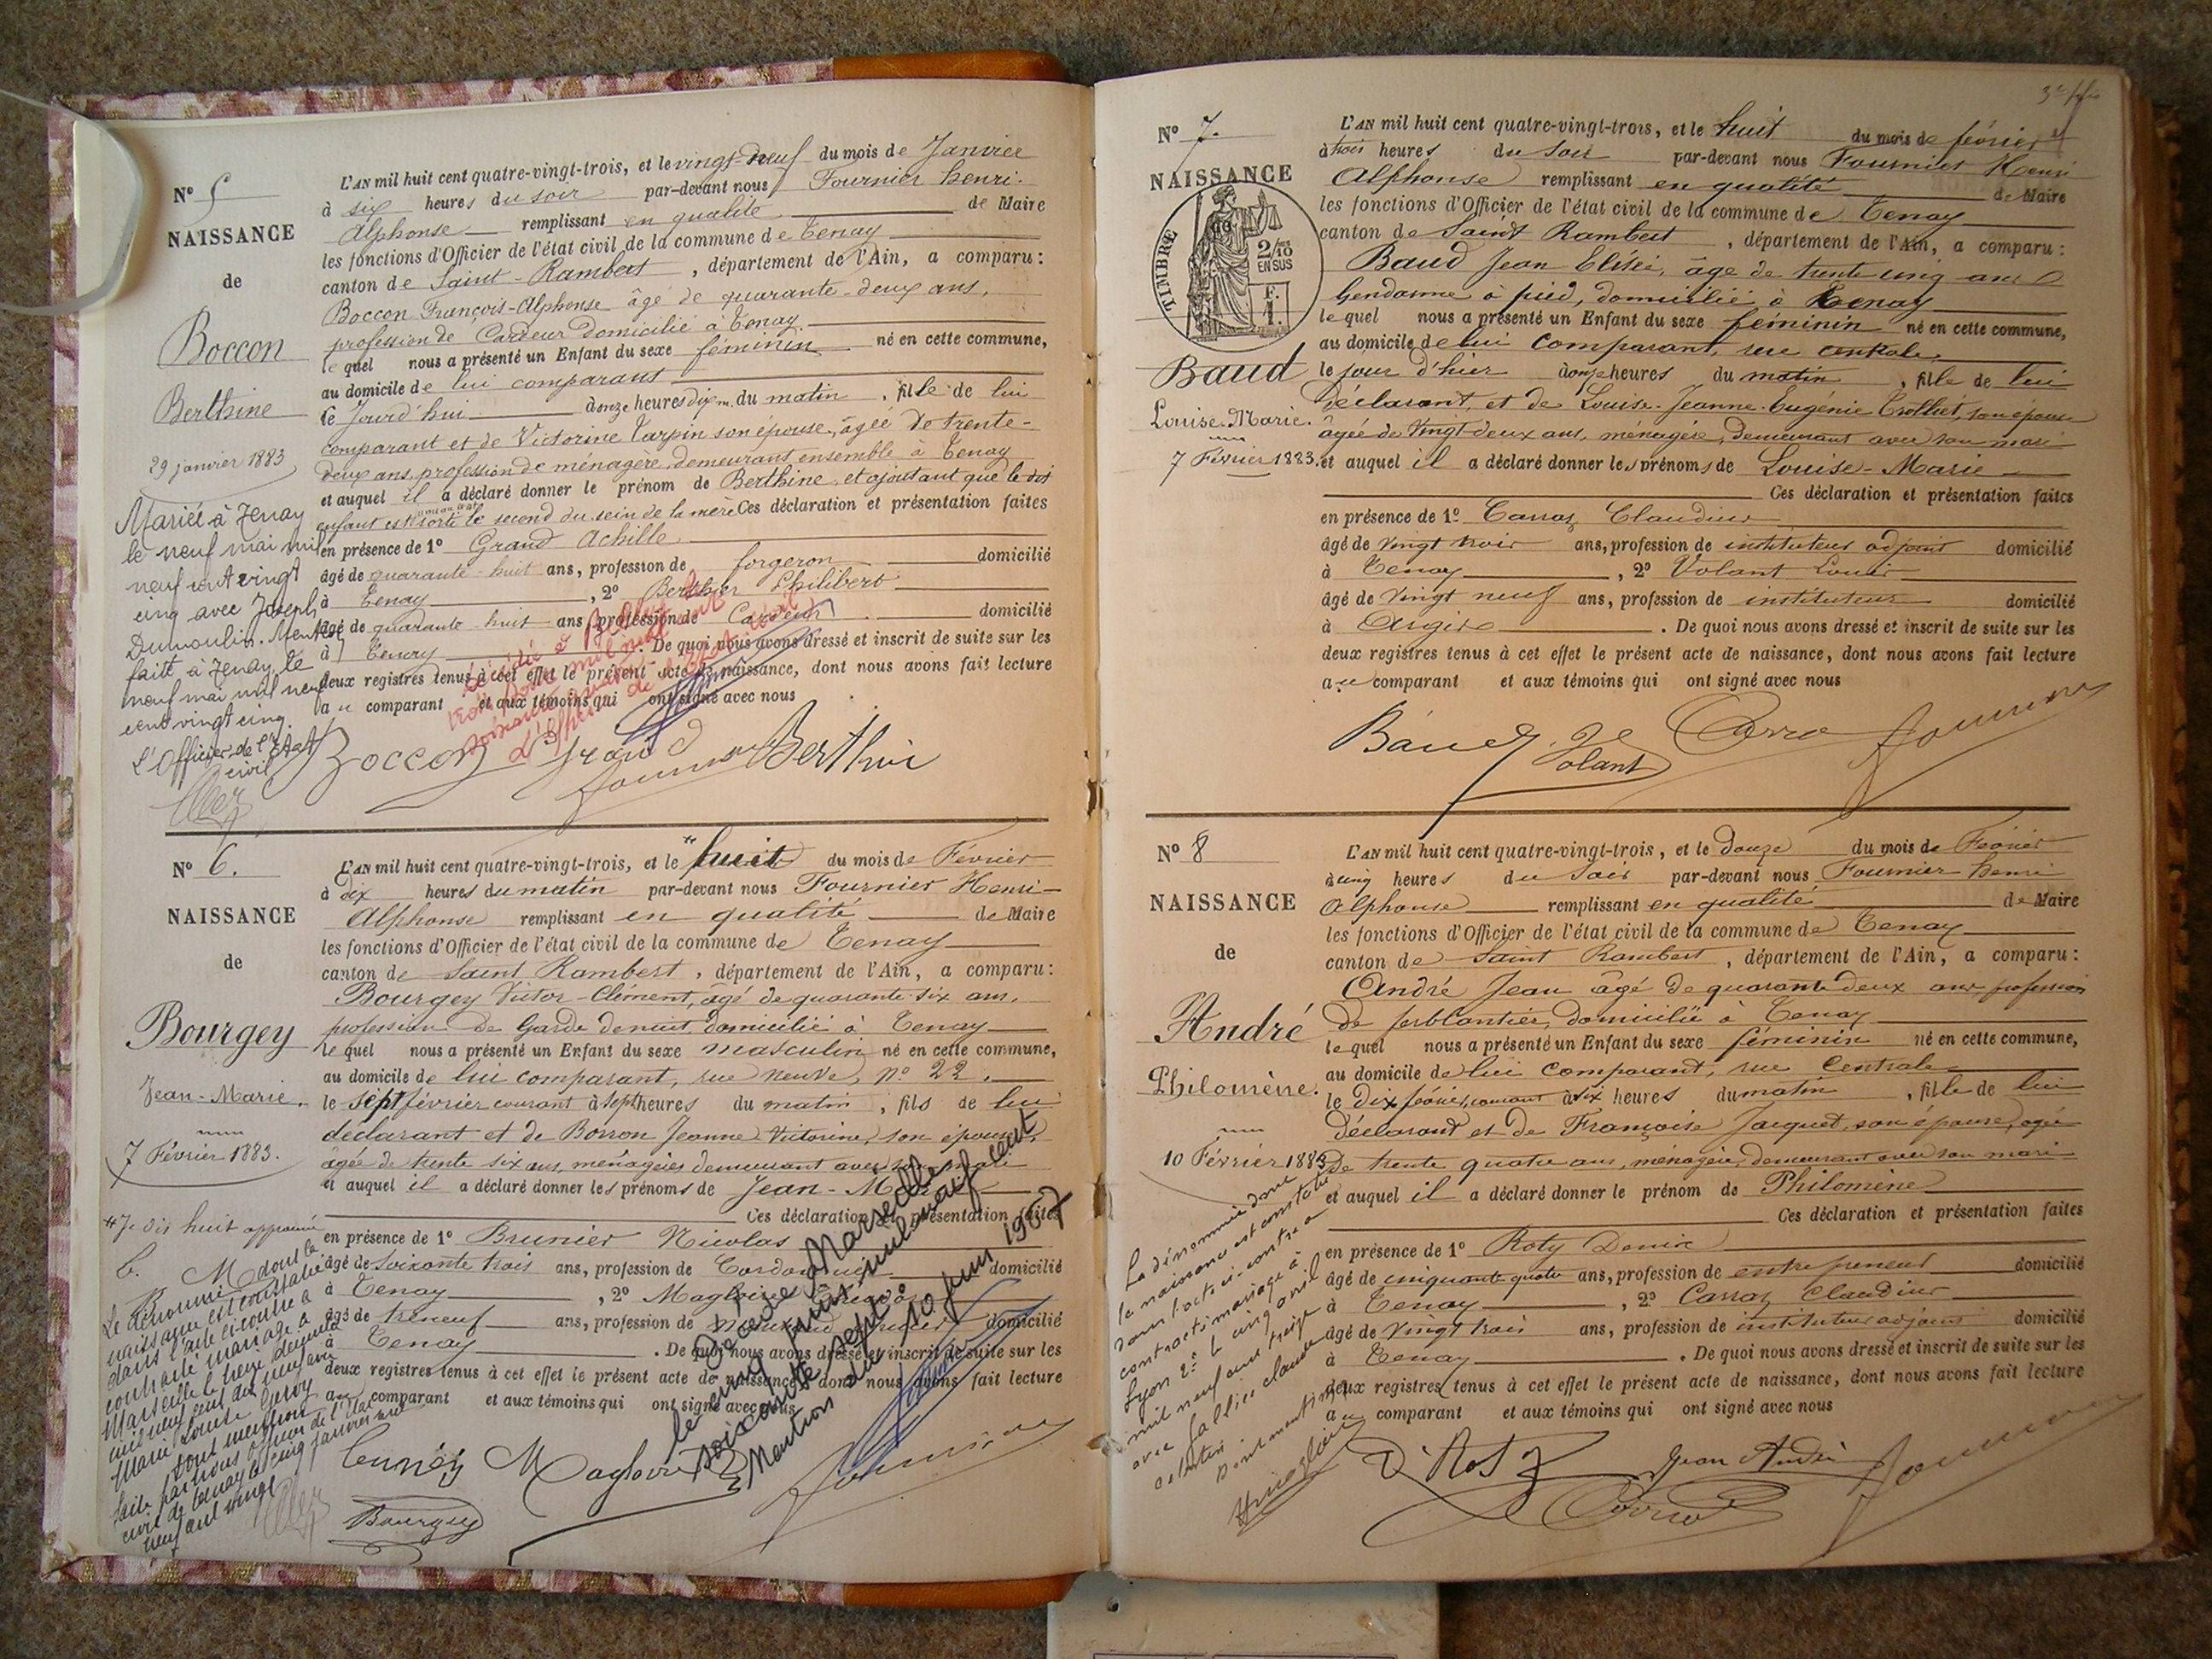 N° 5
NAISSANCE
de
Boccon
Berthine
29 janvier 1883
Mariée à Tenay
le neuf mai mil
neuf cent vingt
cinq avec Joseph
Dumoulin. Mention
faite à Tenay, le
neuf mai mil neuf
cent vingt cinq.
L'Officier de l'Etat
civil
L'AN mil huit cent quatre-vingt-trois, et le vingt-neuf du mois de Janvier
à six heures du soir par-devant nous Fournier henri-
Alphonse remplissant en qualité de Maire
les fonctions d'Officier de l'état civil de la commune de Tenay
canton de Saint-Rambert, département de l'Ain, a comparu:
Boccon François-Alphonse âgé de quarante-deux ans,
profession de Cardeur domicilié à Tenay
lequel nous a présenté un Enfant du sexe féminin né en cette commune,
au domicile de lui comparant
le Jourd'hui à onze heures dix m. du matin, fille de lui
comparant et de Victorine Tarpin son épouse, âgée de trente-
deux ans, profession de ménagère, demeurant ensemble à Tenay
et auquel il a déclaré donner le prénom de Berthine, et ajoutant que le dit
enfant est sorti le second du sein de la mère Ces déclaration et présentation faites
en présence de 1° Grand Achille
âgé de quarante-huit ans, profession de forgeron domicilié
à Tenay, 2° Berthier Philibert
âgé de quarante-huit ans, profession de Cardeur domicilié
à Tenay. De quoi nous avons dressé et inscrit de suite sur les
deux registres tenus à cet effet le présent acte de naissance, dont nous avons fait lecture
au comparant et aux témoins qui ont signé avec nous
Boccon Grand Fournier Berthier
N° 6.
NAISSANCE
de
Bourgey
Jean-Marie.
7 Février 1883.
Je dis huit approuvé
Le dénommé dont la
naissance est constatée
dans l'acte ci contre a
contracté mariage à
Marseille le
mil neuf cent dix neuf avec
Marie Louise
dont mention
faite par nous officier de l'état
civil de Tenay le cinq janvier mil
neuf cent vingt
L'AN mil huit cent quatre-vingt-trois, et le huit du mois de Février
à dix heures du matin par-devant nous Fournier Henri-
Alphonse remplissant en qualité de Maire
les fonctions d'Officier de l'état civil de la commune de Tenay
canton de Saint Rambert, département de l'Ain, a comparu:
Bourgey Victor-Clément, âgé de quarante six ans,
profession de Garde de nuit, domicilié à Tenay
lequel nous a présenté un Enfant du sexe masculin né en cette commune,
au domicile de lui comparant, rue neuve, n° 22.
le sept février courant à sept heures du matin, fils de lui
déclarant et de Borron Jeanne Victorine, son épouse,
âgée de trente six ans, ménagère, demeurant avec
et auquel il a déclaré donner les prénoms de Jean-Marie
Ces déclaration et présentation faites
en présence de 1° Brunier Nicolas
âgé de soixante trois ans, profession de Cordonnier domicilié
à Tenay, 2° Magloire
âgé de ans, profession de domicilié
à Tenay. De quoi nous avons dressé et inscrit de suite sur les
deux registres tenus à cet effet le présent acte de naissance, dont nous avons fait lecture
au comparant et aux témoins qui ont signé avec nous
Décédé à Marseille
le cinq juin mil neuf cent
soixante sept
Mention du 10 juin 1967
Magloire
Bourgey
N° 7.
NAISSANCE
TIMBRE
2/10
EN SUS
F.
1.
Baud
Louise-Marie.
7 Février 1883.
L'AN mil huit cent quatre-vingt-trois, et le huit du mois de février
à trois heures du soir par-devant nous Fournier Henri
Alphonse remplissant en qualité de Maire
les fonctions d'Officier de l'état civil de la commune de Tenay
canton de Saint Rambert, département de l'Ain, a comparu:
Baud Jean Elisée, âgé de trente cinq ans
Gendarme à pied, domicilié à Tenay
lequel nous a présenté un Enfant du sexe féminin né en cette commune,
au domicile de lui comparant, rue centrale,
le jour d'hier à onze heures du matin, fille de lui
déclarant, et de Louise-Jeanne-Eugénie Trolliet, son épouse
âgée de vingt deux ans, ménagère, demeurant avec son mari
et auquel il a déclaré donner les prénoms de Louise-Marie
Ces déclaration et présentation faites
en présence de 1° Carraz Claudius
âgé de vingt trois ans, profession de instituteur adjoint domicilié
à Tenay, 2° Volant Louis
âgé de vingt neuf ans, profession de instituteur domicilié
à Argis. De quoi nous avons dressé et inscrit de suite sur les
deux registres tenus à cet effet le présent acte de naissance, dont nous avons fait lecture
au comparant et aux témoins qui ont signé avec nous
Baud Volant Carraz Fournier
N° 8
NAISSANCE
de
André
Philomène.
10 Février 1883
La dénommée dont
la naissance est constatée
dans l'acte ci-contre a
contracté mariage à
Lyon 2e le cinq avril
mil neuf cent treize
avec Claude
L'AN mil huit cent quatre-vingt-trois, et le douze du mois de Février
à cinq heures du soir par-devant nous Fournier henri
Alphonse remplissant en qualité de Maire
les fonctions d'Officier de l'état civil de la commune de Tenay
canton de Saint Rambert, département de l'Ain, a comparu:
André Jean âgé de quarante deux ans profession
de ferblantier, domicilié à Tenay
lequel nous a présenté un Enfant du sexe féminin né en cette commune,
au domicile de lui comparant, rue Centrale
le dix février, courant à six heures du matin, fille de lui
déclarant et de Françoise Jacquet, son épouse, âgée
de trente quatre ans, ménagère, demeurant avec son mari
et auquel il a déclaré donner le prénom de Philomène
Ces déclaration et présentation faites
en présence de 1° Roty Denis
âgé de cinquante quatre ans, profession de entrepreneur domicilié
à Tenay, 2° Carraz Claudius
âgé de vingt trois ans, profession de instituteur adjoint domicilié
à Tenay. De quoi nous avons dressé et inscrit de suite sur les
deux registres tenus à cet effet le présent acte de naissance, dont nous avons fait lecture
au comparant et aux témoins qui ont signé avec nous
D. Roty Jean André Fournier
Carraz